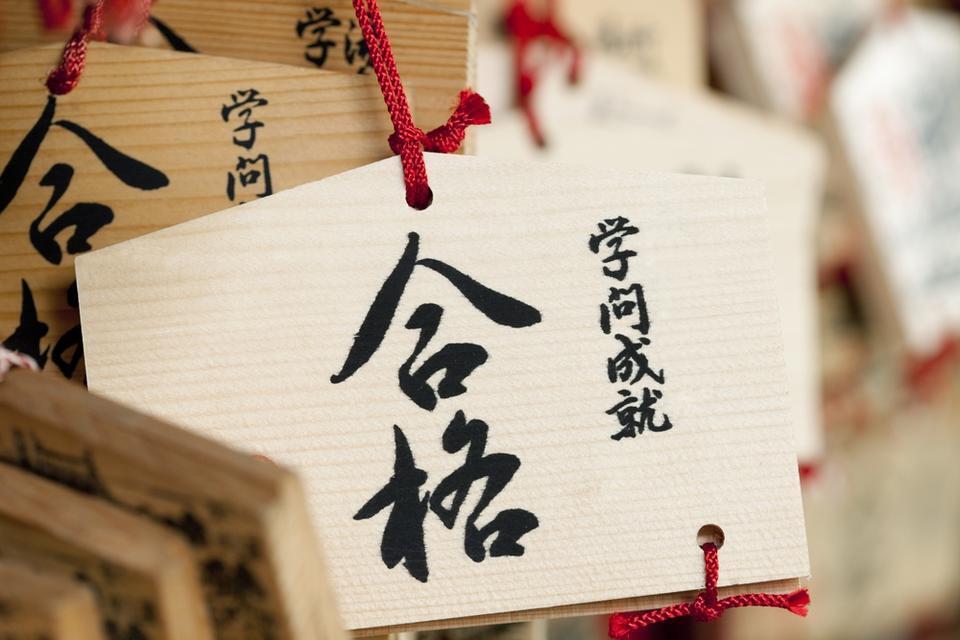 学問成就
合格
学問
合
学